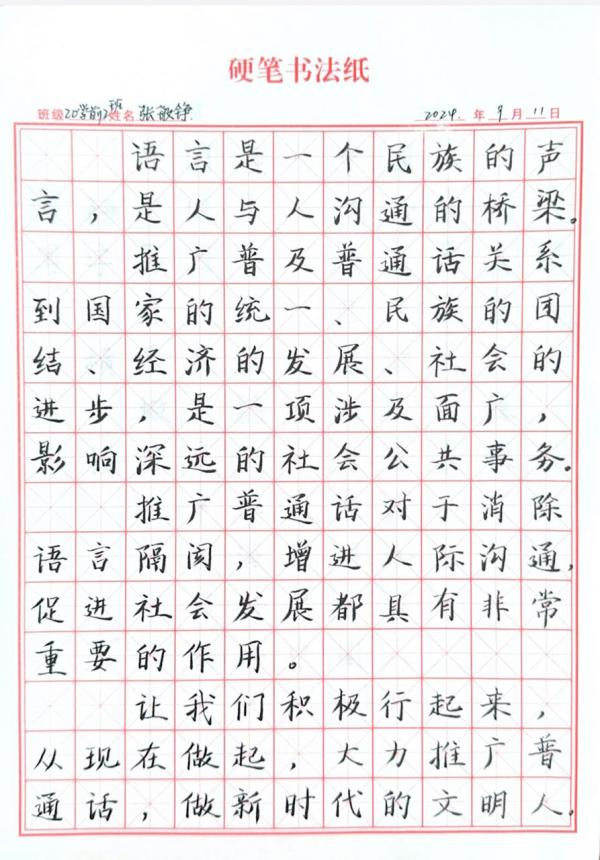 硬笔书法纸
班级20学前2班姓名张敏铮 2024.年9月11日
语言是一个民族的声
言，是人与人沟通的桥梁。
推广普及普通话关系
到国家的统一、民族的团
结、经济的发展、社会的
进步，是一项涉及面广，
影响深远的社会公共事务。
推广普通话对于消除
语言隔阂，增进人际沟通，
促进社会发展都具有非常
重要的作用。
让我们积极行起来，
从现在做起，大力推广普
通话，做新时代的文明人。